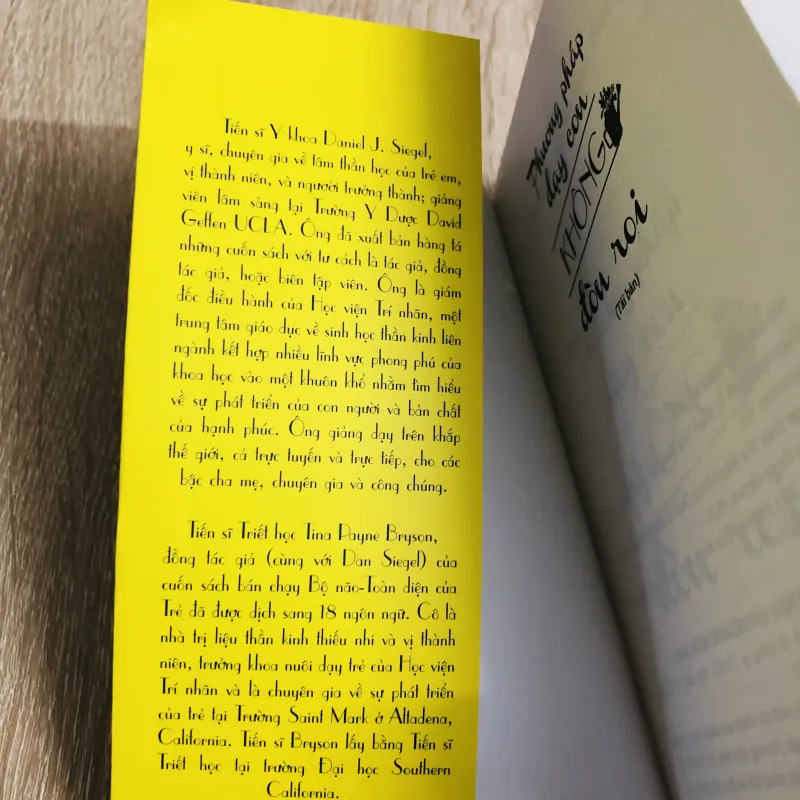 Tiến sĩ Y khoa Daniel J. Siegel,
y sĩ, chuyên gia về tâm thần học của trẻ em,
vị thành niên, và người trưởng thành; giảng
viên lâm sàng tại Trường Y Dược David
Geffen UCLA. Ông đã xuất bản hàng tá
những cuốn sách với tư cách là tác giả, đồng
tác giả, hoặc biên tập viên. Ông là giám
đốc điều hành của Học viện Trí nhãn, một
trung tâm giáo dục về sinh học thần kinh liên
ngành kết hợp nhiều lĩnh vực phong phú của
khoa học vào một khuôn khổ nhằm tìm hiểu
về sự phát triển của con người và bản chất
của hạnh phúc. Ông giảng dạy trên khắp
thế giới, cả trực tuyến và trực tiếp, cho các
bậc cha mẹ, chuyên gia và công chúng.
Tiến sĩ Triết học Tina Payne Bryson,
đồng tác giả (cùng với Dan Siegel) của
cuốn sách bán chạy Bộ não-Toàn diện của
Trẻ đã được dịch sang 18 ngôn ngữ. Cô là
nhà trị liệu thần kinh thiếu nhi và vị thành
niên, trưởng khoa nuôi dạy trẻ của Học viện
Trí nhãn và là chuyên gia về sự phát triển
của trẻ tại Trường Saint Mark ở Altadena,
California. Tiến sĩ Bryson lấy bằng Tiến sĩ
Triết học tại trường Đại học Southern
California.
Phương pháp
dạy con
KHÔNG
đòn roi
(Tái bản)